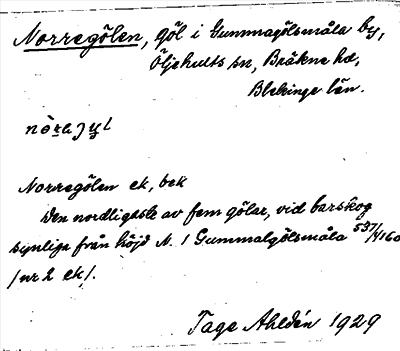 Norregölen, göl i Gummagölsmåla by,
Öljehults sn, Bräkne hd,
Blekinge län.
Norregölen ek, bek
Den nordligaste av fem gölar, vid barskog
synliga från höjd N. i Gummalgölsmåla 537/4160
/nr 2 ek/.
Tage Ahldén 1929